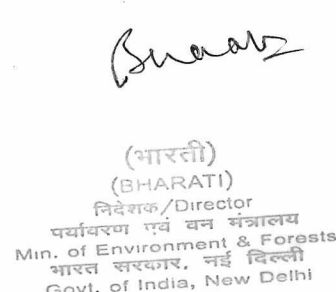 Bharati
(भारती)
(BHARATI)
निदेशक/Director
पर्यावरण एवं वन मंत्रालय
Min. of Environment & Forests
भारत सरकार, नई दिल्ली
Govt. of India, New Delhi